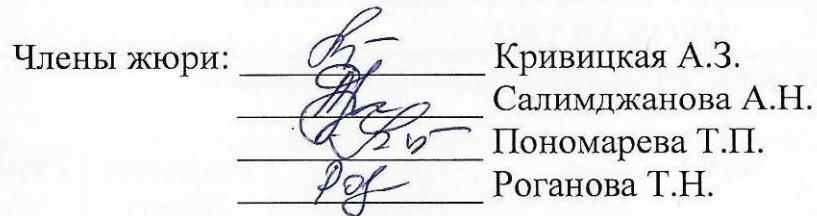 Члены жюри: Кривицкая А.З.
Салимджанова А.Н.
Пономарева Т.П.
Роганова Т.Н.